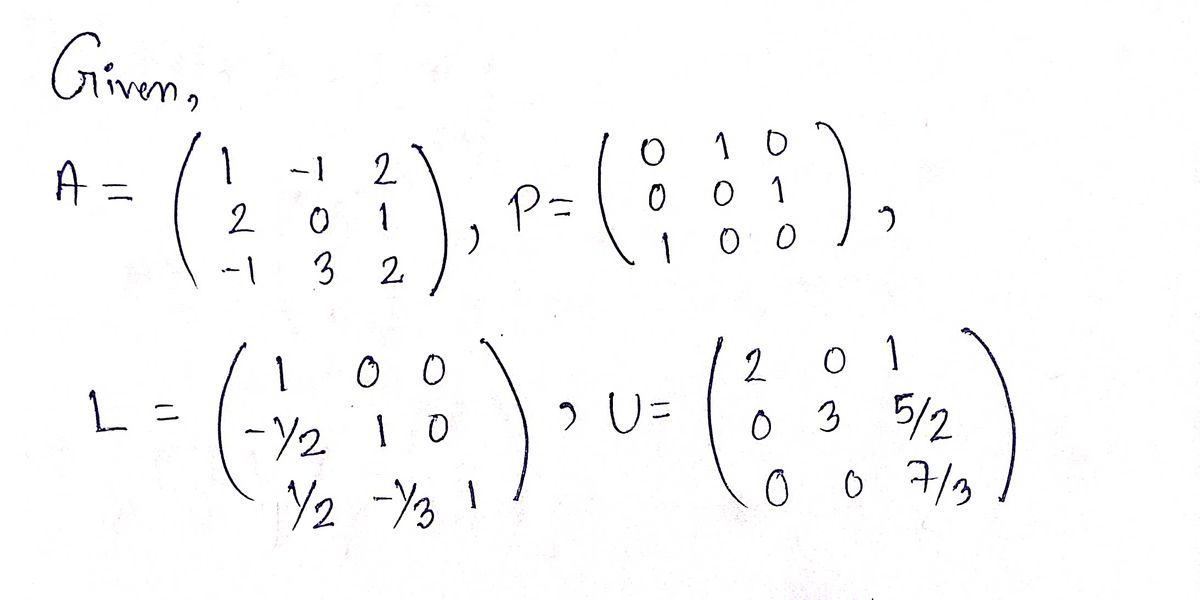 Given,
A = ( 1 -1 2 ; 2 0 1 ; -1 3 2 ), P = ( 0 1 0 ; 0 0 1 ; 1 0 0 ),
L = ( 1 0 0 ; -1/2 1 0 ; 1/2 -1/3 1 ), U = ( 2 0 1 ; 0 3 5/2 ; 0 0 7/3 )